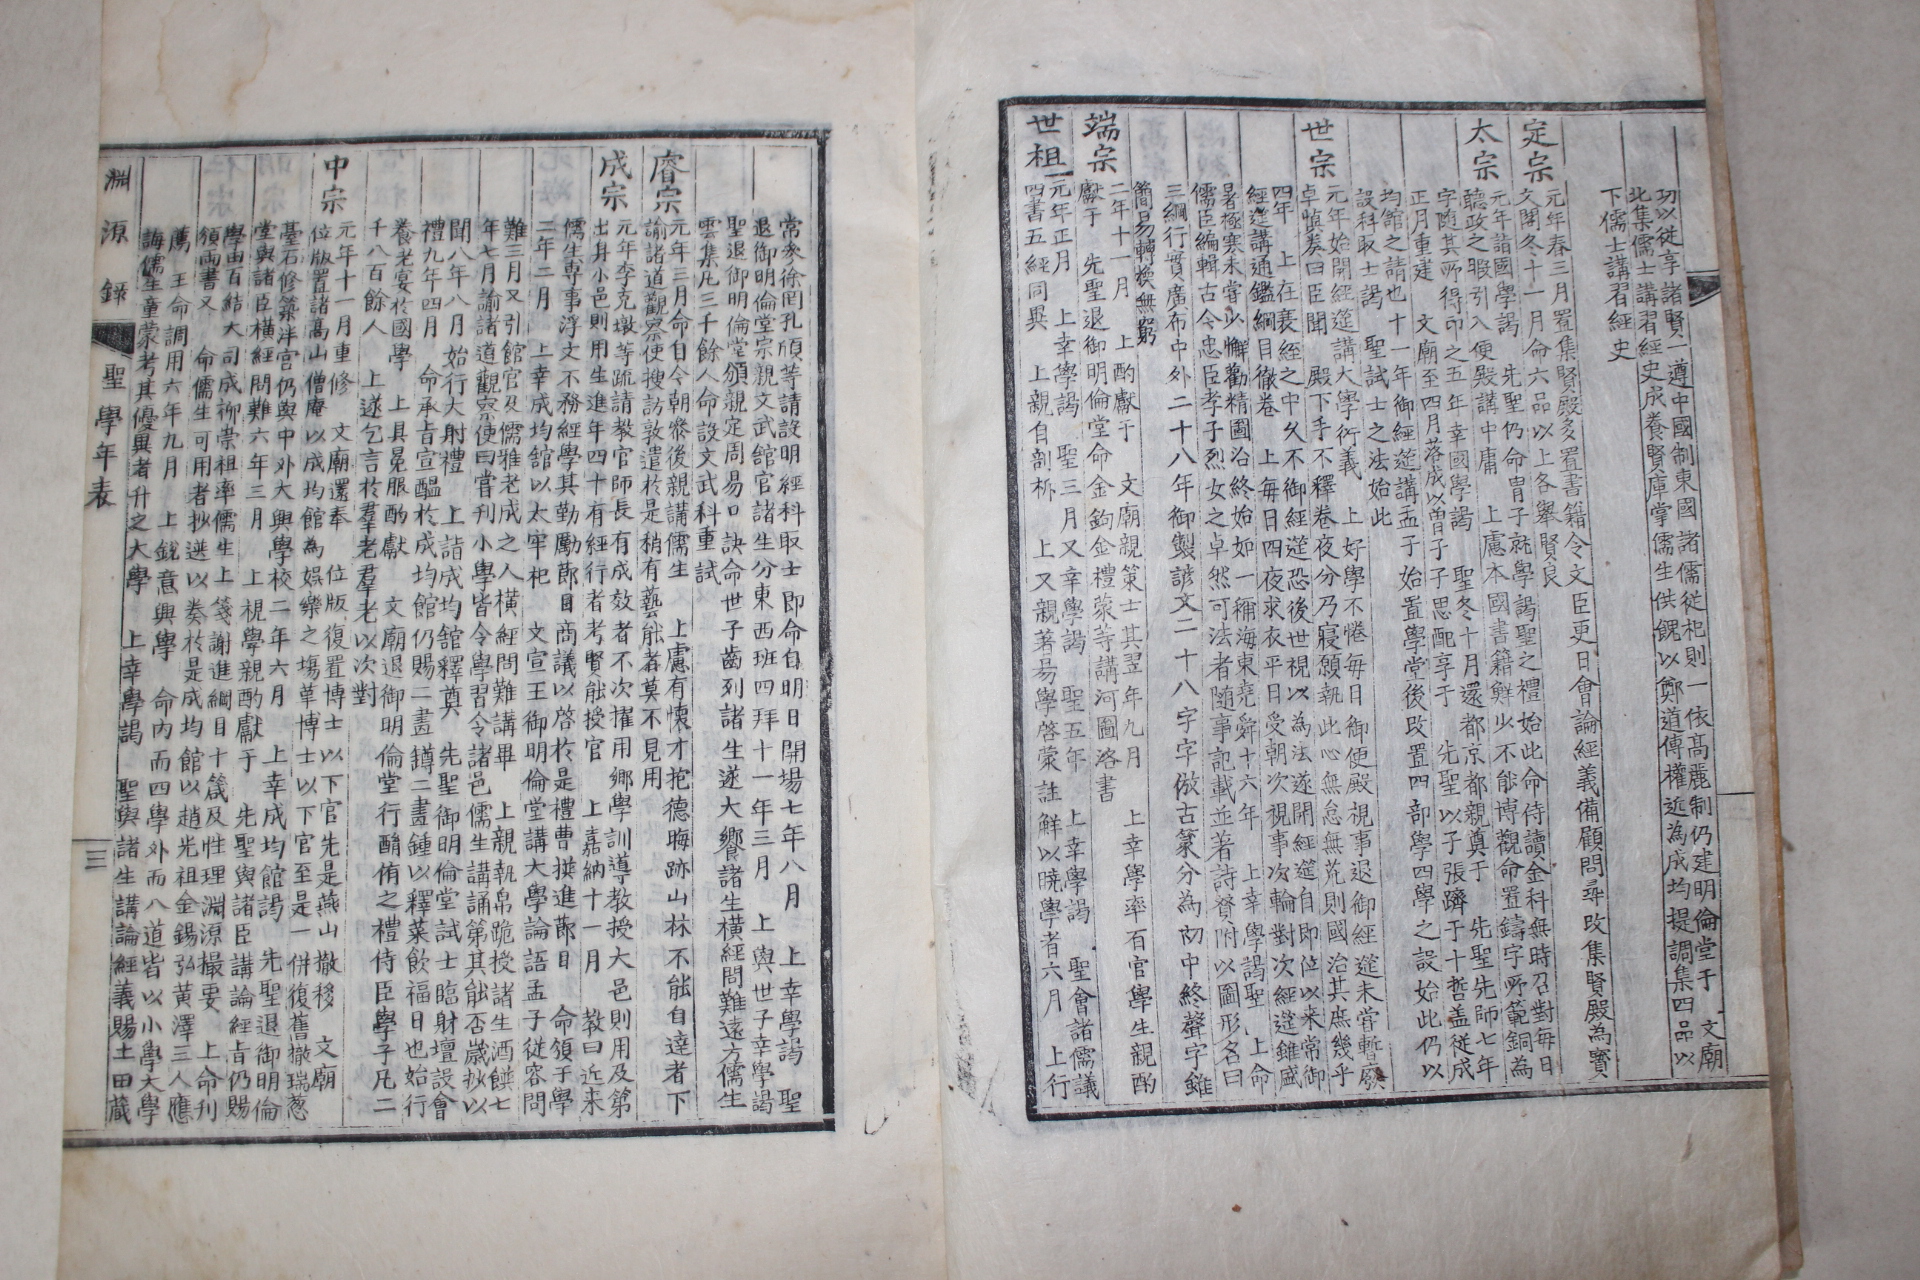 功以從享諸賢一遵中國制東國諸儒從祀則一依高麗制仍建明倫堂于 文廟
北集儒士講習經史成養賢庫掌儒生供餽以鄭道傳權近為成均提調集四品以
下儒士講習經史
定宗
元年春三月置集賢殿多置書籍令文臣更日會論經義備顧問尋改集賢殿為寶
文閣冬十一月命六品以上各舉賢良
太宗
元年詣國學謁 先聖仍命冑子就學謁聖之禮始此命侍讀金科無時召對每日
聽政之暇引入便殿講中庸 上慮本國書籍鮮少不能博觀命置鑄字所範銅為
字隨其所得印之五年幸國學謁 聖冬十月還都京都親奠于 先聖先師七年
正月重建 文廟至四月落成以曾子子思配享于 先聖以子張躋于十哲盖從成
均館之請也十一年御經筵講孟子始置學堂後改置四部學四學之設始此仍以
設科取士謁 聖試士之法始此
世宗
元年始開經筵講大學衍義 上好學不惓每日御便殿視事退御經筵未嘗暫廢
卓慎奏曰臣聞 殿下手不釋卷夜分乃寢願執此心無怠無荒則國治其庶幾乎
四年 上在衰絰之中久不御經筵恐後世視以為法遂開經筵自即位以来常御
經筵講通鑑綱目徹卷 上每日四夜求衣平日受朝次視事次輪對次經筵雖盛
暑極寒未嘗少懈勸精圖治終始如一稱海東堯舜十六年 上幸學謁聖 上命
儒臣編輯古今忠臣孝子烈女之卓然可法者随事記載並著詩贊附以圖形名曰
三綱行實廣布中外二十八年御製諺文二十八字字倣古篆分為初中終聲字雖
簡易轉換無窮
端宗
二年十一月 上酌獻于 文廟親策士其翌年九月 上幸學率百官學生親酌
獻于 先聖退御明倫堂命金鉤金禮蒙等講河圖洛書
世祖
元年正月 上幸學謁 聖三月又幸學謁 聖五年 上幸學謁 聖會諸儒議
四書五經同異 上親自剖柝 上又親著易學啓蒙註鮮以曉學者六月 上行
常參徐岡孔頎等請設明經科取士即命自明日開場七年八月 上幸學謁 聖
退御明倫堂宗親文武舘官諸生分東西班四拜十一年三月 上與世子幸學謁
聖退御明倫堂頒親定周易口訣命世子齒列諸生遂大饗諸生橫經問難遠方儒生
雲集凡三千餘人命設文武科重試
睿宗
元年三月命自今朝叅後親講儒生 上慮有懷才抱德晦跡山林不能自達者下
諭諸道觀察使搜訪敦遣於是稍有藝能者莫不見用
成宗
元年李克墩等疏請教官師長有成效者不次擢用鄉學訓導教授大邑則用及第
出身小邑則用生進年四十有經行者考賢能授官 上嘉納十一月 教曰近来
儒生專事浮文不務經學其勤勵節目商議以啓於是禮曹撰進節目 命領于學
二年二月 上幸成均舘以太牢祀 文宣王御明倫堂講大學論語孟子從容問
難三月又引館官及儒雅老成之人橫經問難講畢 上親執帛跪授諸生酒饌七
年七月諭諸道觀察使曰嘗刊小學皆令學習令諸邑儒生講誦第其能否歲抄以
聞八年八月始行大射禮 上詣成均舘釋奠 先聖御明倫堂試士臨財壇設會
禮九年四月 命承旨宣醞於成均館仍賜二畫鐏二畫鍾以釋菜飲福日也始行
養老宴於國學 上具冕服酌獻 文廟退御明倫堂行酳侑之禮侍臣學子凡二
千八百餘人 上遂乞言於羣老羣老以次對
中宗
元年十一月重修 文廟還奉 位版復置博士以下官先是燕山撤移 文廟
位版置諸高山僧庵以成均館為娯樂之塲革博士以下官至是一併復舊撤瑞蔥
䑓石修築泮宮仍與中外大興學校二年六月 上幸成均館謁 先聖退御明倫
堂與諸臣橫經問難六年三月 上視學親酌獻于 先聖與諸臣講論經旨仍賜
學田百結大司成柳崇祖率儒生上箋謝進綱目十箴及性理淵源撮要 上命刊
頒兩書又 命儒生可用者抄選以奏於是成均館以趙光祖金錫弘黃澤三人應
薦 王命調用六年九月 上銳意興學 命内而四學外而八道皆以小學大學
誨儒生童蒙考其優異者升之大學 上幸學謁 聖與諸生講論經義賜土田藏
淵源錄 聖學年表 三